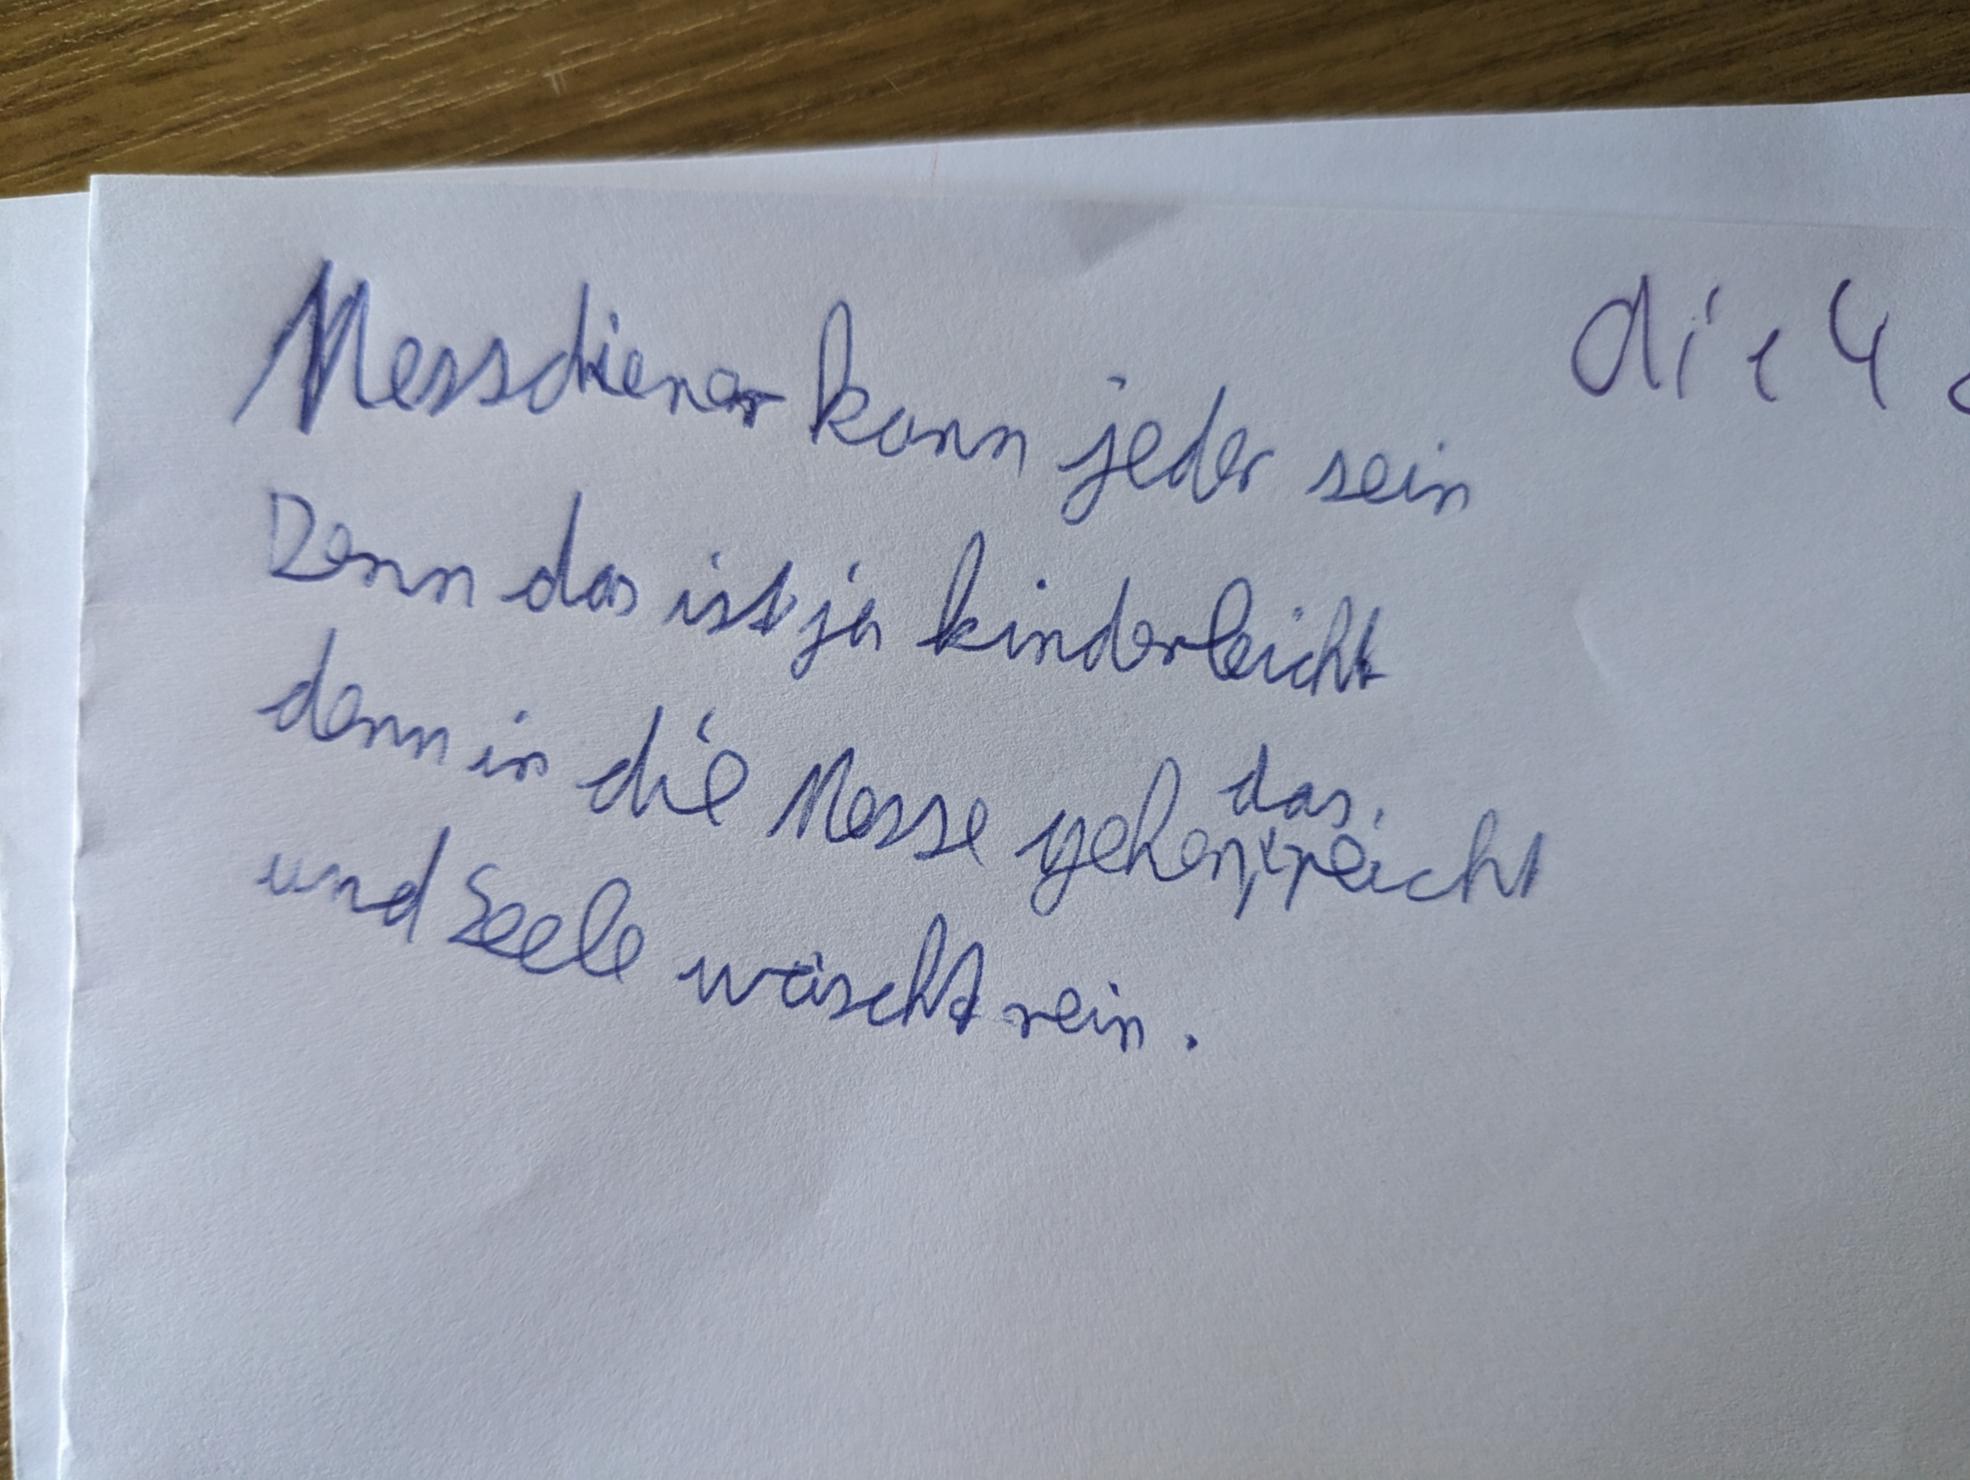 Messdiener kann jeder sein
die 4
Denn das ist ja kinderleicht
denn in die Messe gehen, das reicht
und Seele wäscht rein.